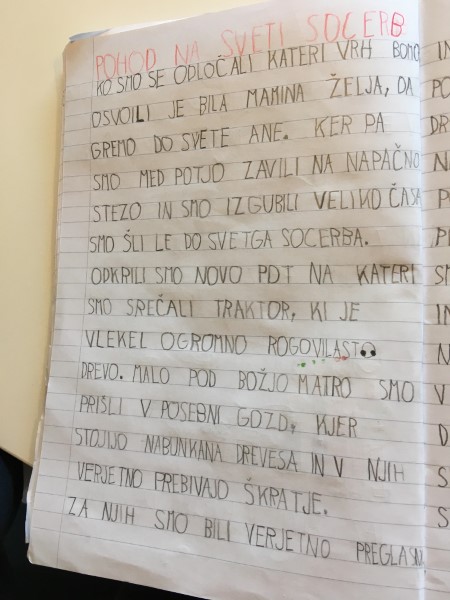 POHOD NA SVETI SOCERB
KO SMO SE ODLOČALI KATERI VRH BOMO
OSVOILI JE BILA MAMINA ŽELJA, DA
GREMO DO SVETE ANE. KER PA
SMO MED POTJO ZAVILI NA NAPAČNO
STEZO IN SMO IZGUBILI VELIKO ČASA
SMO ŠLI LE DO SVETGA SOCERBA.
ODKRILI SMO NOVO POT NA KATERI
SMO SREČALI TRAKTOR, KI JE
VLEKEL OGROMNO ROGOVILASTO
DREVO. MALO POD BOŽJO MATRO SMO
PRIŠLI V POSEBNI GOZD, KJER
STOJIJO NABUNKANA DREVESA IN V NJIH
VERJETNO PREBIVAJO ŠKRATJE.
ZA NJIH SMO BILI VERJETNO PREGLASNI